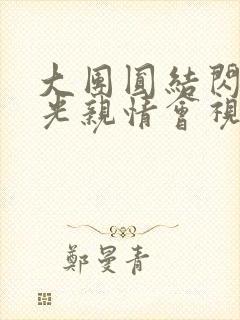 大團圓結閃
光親情會視
鄭曼青